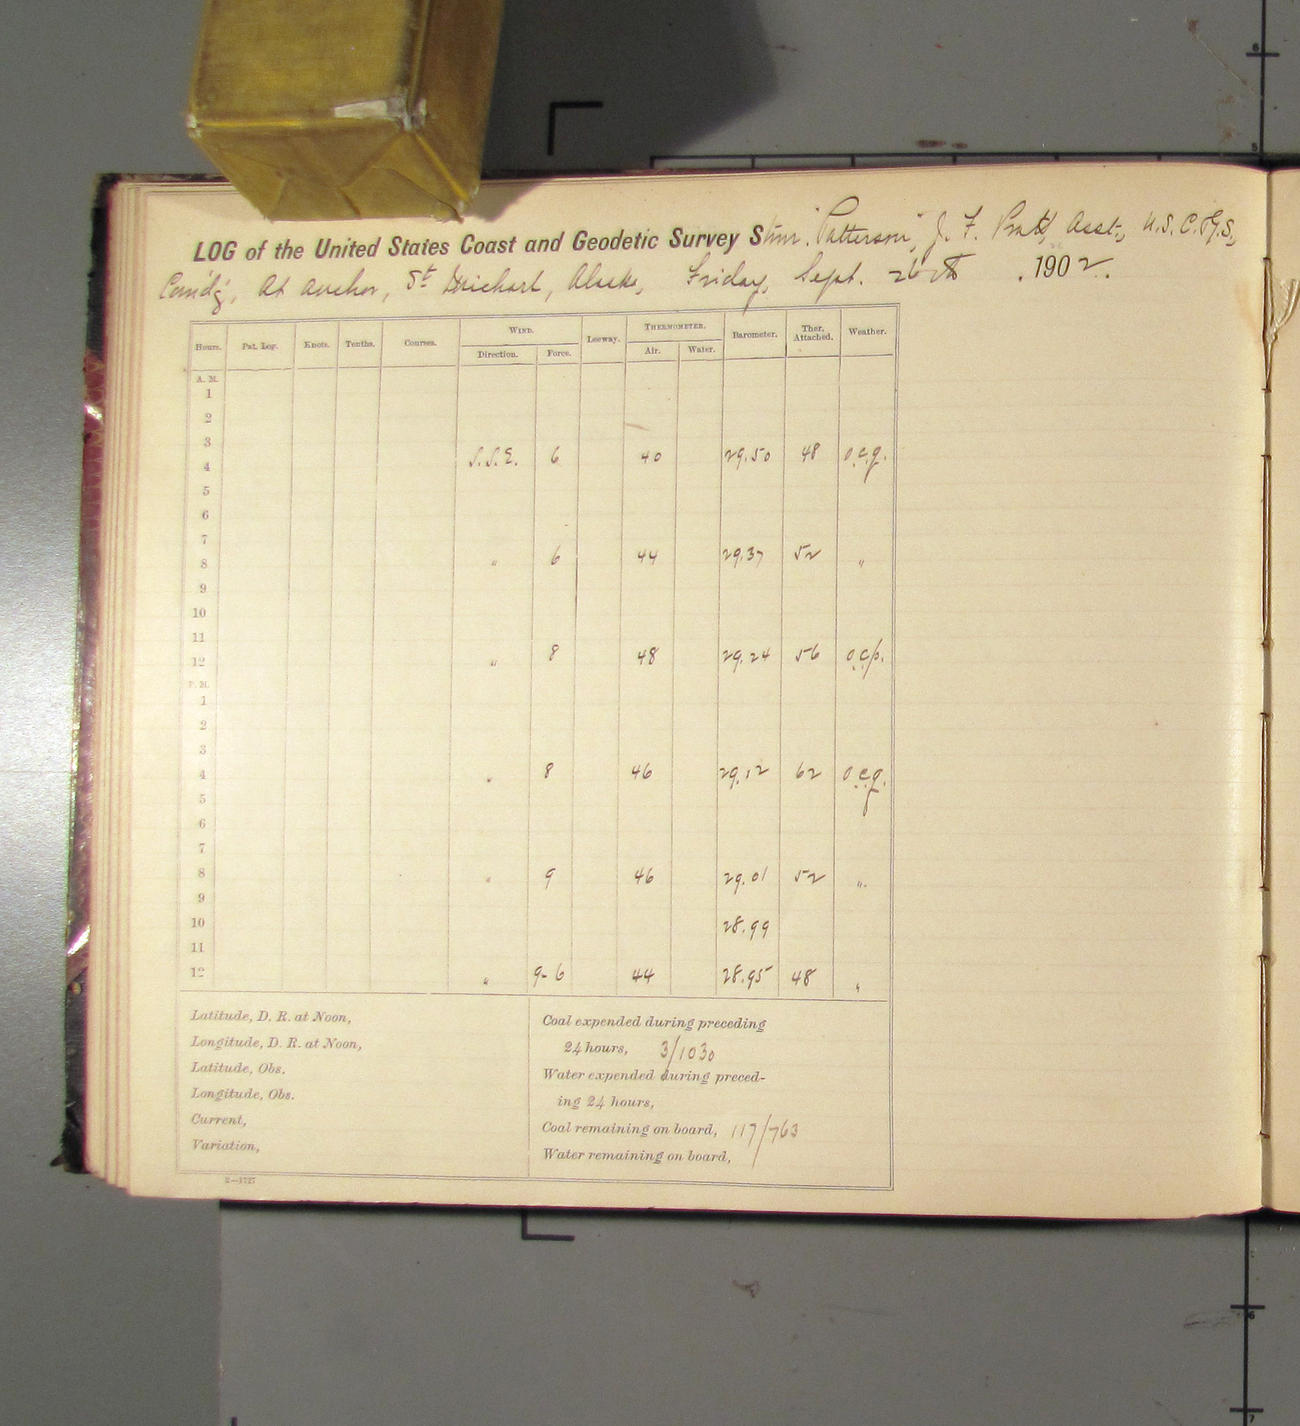 LOG of the United States Coast and Geodetic Survey Stmr. "Patterson", J. F. Pratt, Asst., U.S.C.&G.S,
Comd'g, At anchor, St. Michael, Alaska, Friday, Sept. 26th, 1902.
Hours. Pat. Log. Knots. Tenths. Courses. WIND. Leeway. THERMOMETER. Barometer. Ther. Attached. Weather.
Direction. Force. Air. Water.
A. M.
1
2
3
4 S.S.E. 6 40 29.50 48 o.c.q.
5
6
7
8 " 6 44 29.37 52 "
9
10
11
12 " 8 48 29.24 56 o.c.p.
P. M.
1
2
3
4 " 8 46 29.12 62 o.c.q.
5
6
7
8 " 9 46 29.01 52 "
9
10 28.99
11
12 " 9-6 44 28.95 48 "
Latitude, D. R. at Noon,
Longitude, D. R. at Noon,
Latitude, Obs.
Longitude, Obs.
Current,
Variation,
Coal expended during preceding
24 hours, 3/1030
Water expended during preced-
ing 24 hours,
Coal remaining on board, 117/763
Water remaining on board,
2—1727
6
5
6
7